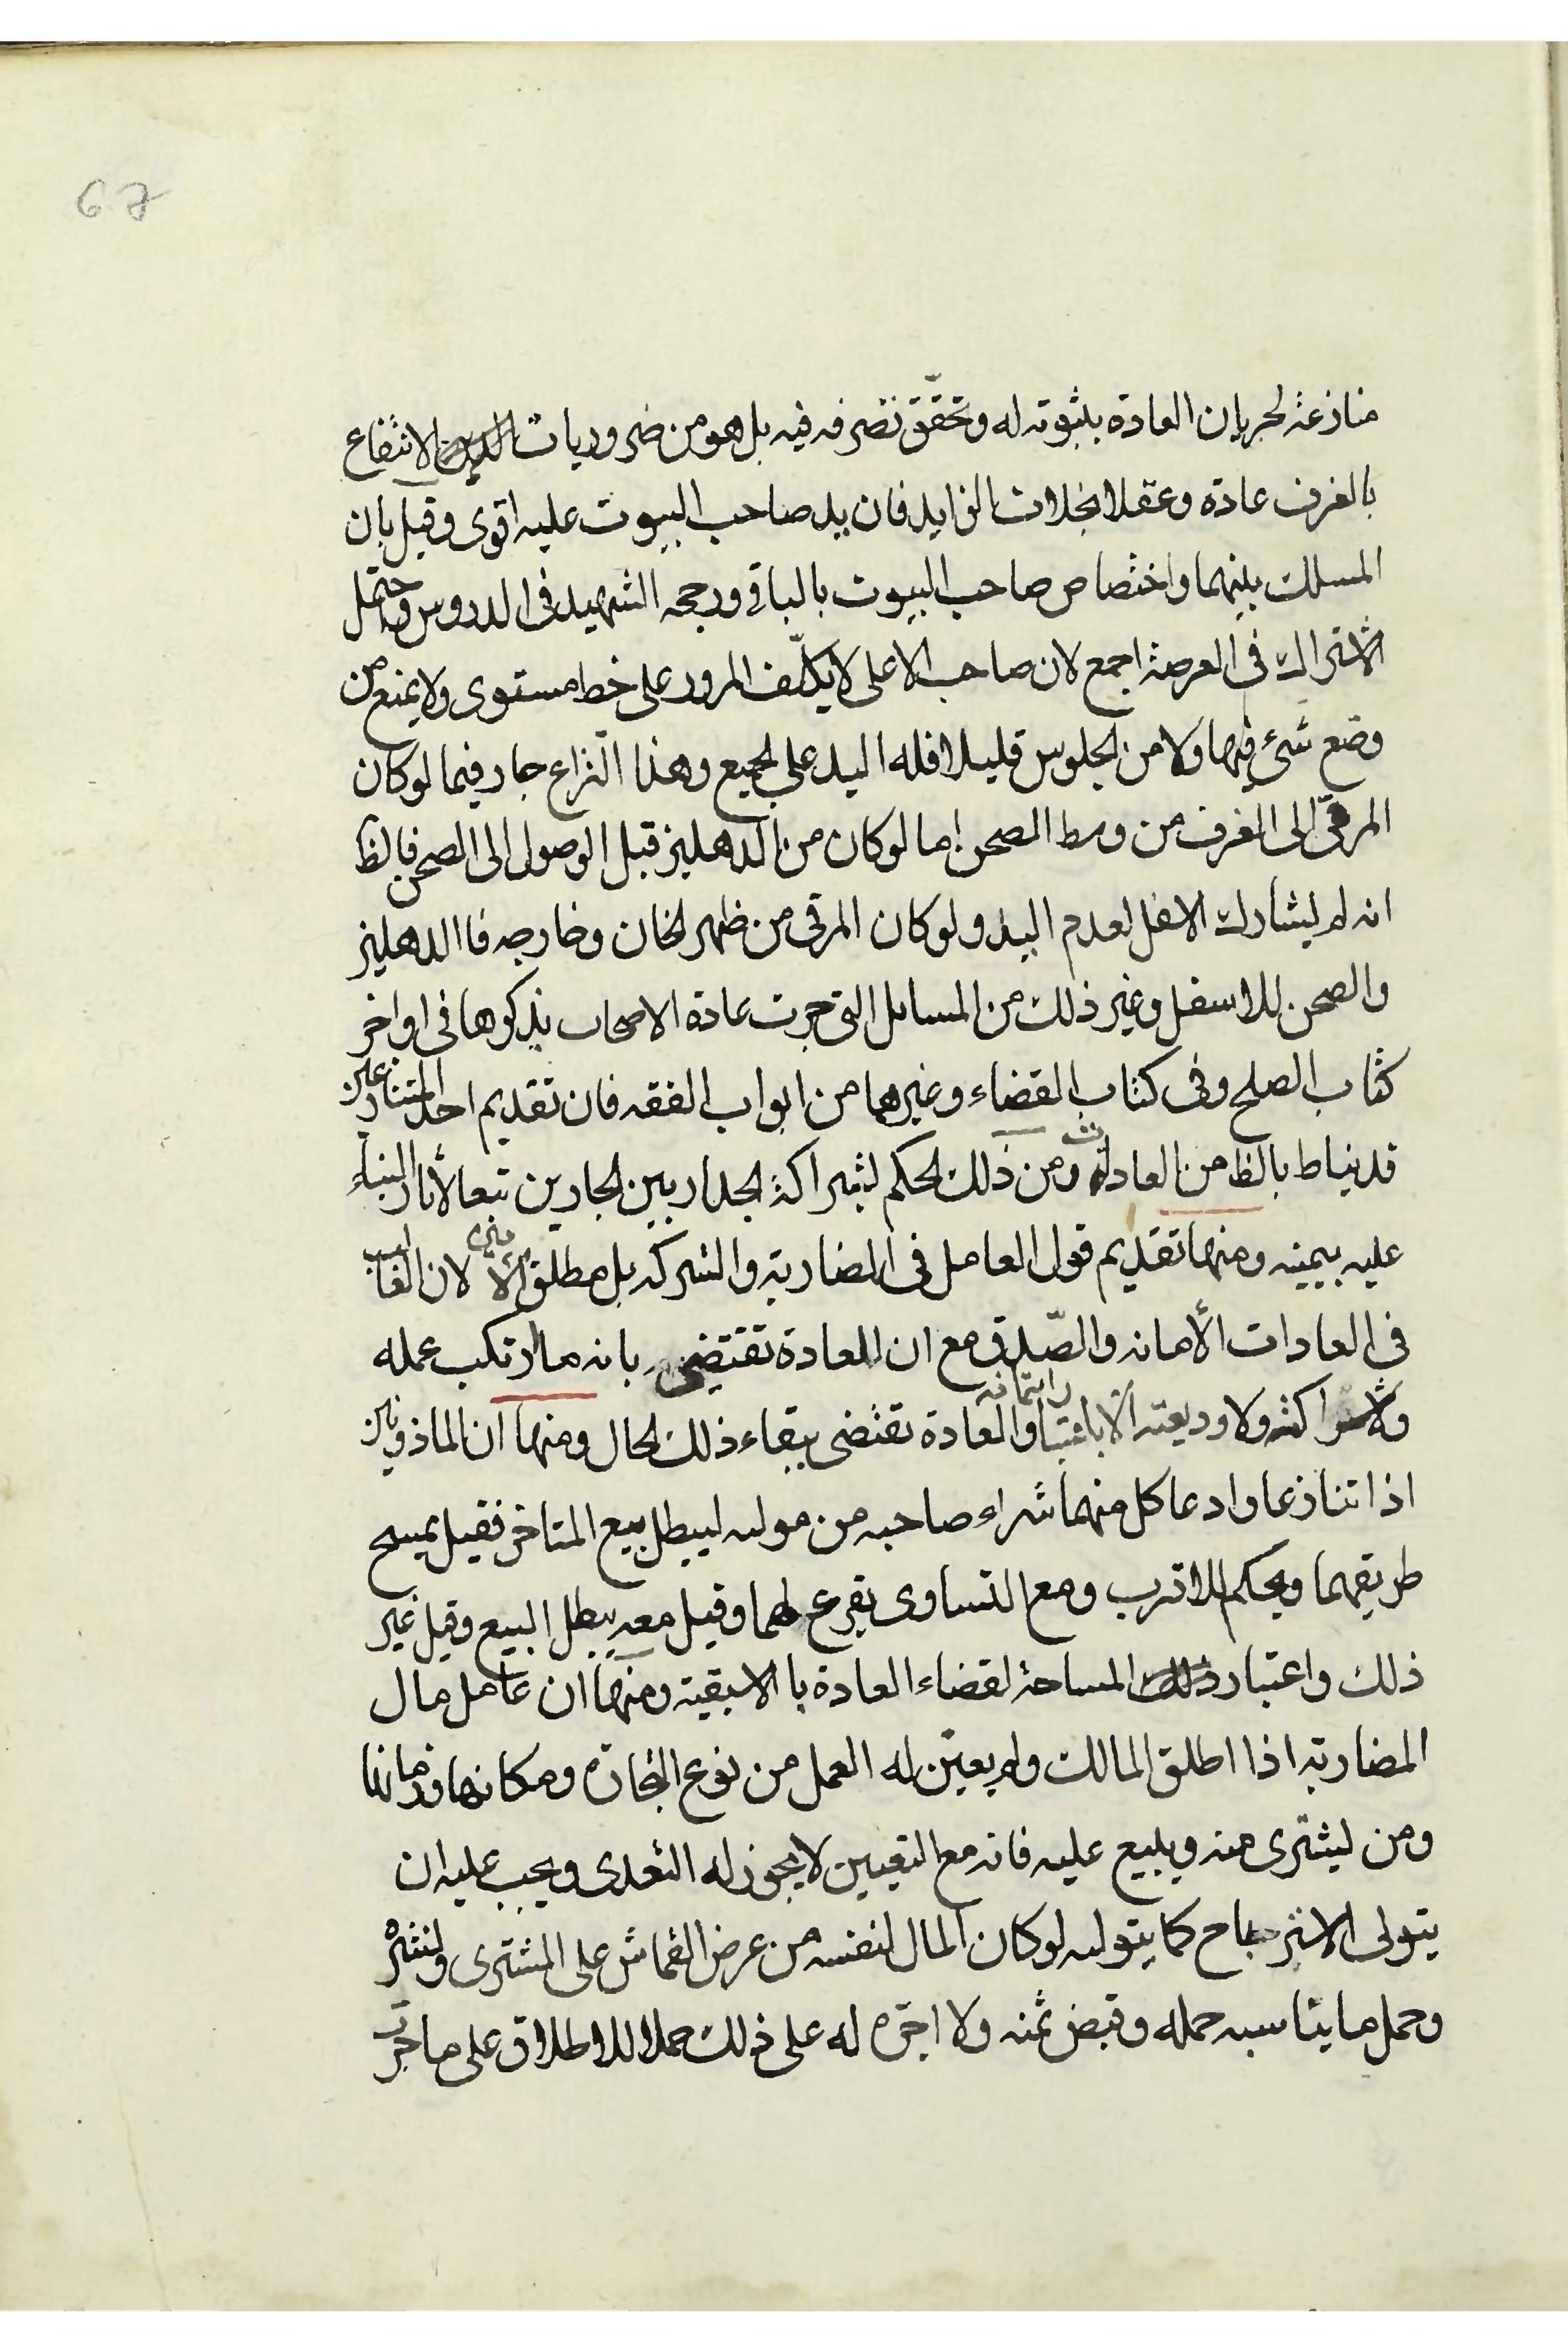 67
منازعة لجريان العادة بثبوته له وتحقّق تصرفه فيه بل هو من ضروريات الانتفاع
بالغرف عادة وعقلا بخلاف الزايد فان يد صاحب البيوت عليه اقوى وقيل بان
المسلك بينهما واختصاص صاحب البيوت بالباقي ورجحه الشهيد في الدروس ويحتمل
الاشتراك في العرصة اجمع لان صاحب الاعلى لا يكلّف المرور على خط مستوى ولا يمنع من
وضع شئ فيها ولا من الجلوس قليلا فله اليد على الجميع وهذا النّزاع جار فيما لو كان
المرقى الى الغرف من وسط الصحن اما لو كان من الدهليز قبل الوصول الى الصحن فالظ
انه لم يشارك الاسفل لعدم اليد ولو كان المرقى من ظهر الخان وخارجه فا الدهليز
والصحن للاسفل وغير ذلك من المسائل التي جرت عادة الاصحاب بذكرها في اواخر
كتاب الصلح وفي كتاب القضاء وغيرهما من ابواب الفقه فان تقديم احد المتنازعين
قد يناط بالظ من العادات ومن ذلك الحكم بشراكة الجدار بين الجارين تبعا لأثار البناء
عليه بيمينه ومنها تقديم قول العامل في المضاربة والشركه بل مطلق الأمين لان الغالب
في العادات الأمانه والصّدق مع ان العادة تقتضى بانه ما ارتكب عمله
ولا شراكته ولا وديعته الا باعتبار ايتمانه والعادة تقتضى ببقاء ذلك الحال ومنها ان الماذونين
اذا تنازعا وادعا كل منهما شراء صاحبه من موليه ليبطل بيع المتاخر فقيل يمسح
طريقهما ويحكم للاقرب ومع التساوى يقرع لهما وقيل معه يبطل البيع وقيل غير
ذلك واعتبار المساحة لقضاء العادة با الاسبقية ومنها ان عامل مال
المضاربة اذا اطلق المالك ولم يعيّن له العمل من نوع التجارة ومكانها وزمانها
ومن يشترى منه ويبيع عليه فانه مع التعيين لا يجوز له التعدى ويجب عليه ان
يتولى الاسترباح كما يتوليه لو كان المال لنفسه من عرض القماش على المشترى ونشره
وحمل ما يناسبه حمله وقبض ثمنه ولا اجرة له على ذلك حملا للاطلاق على ما جرت